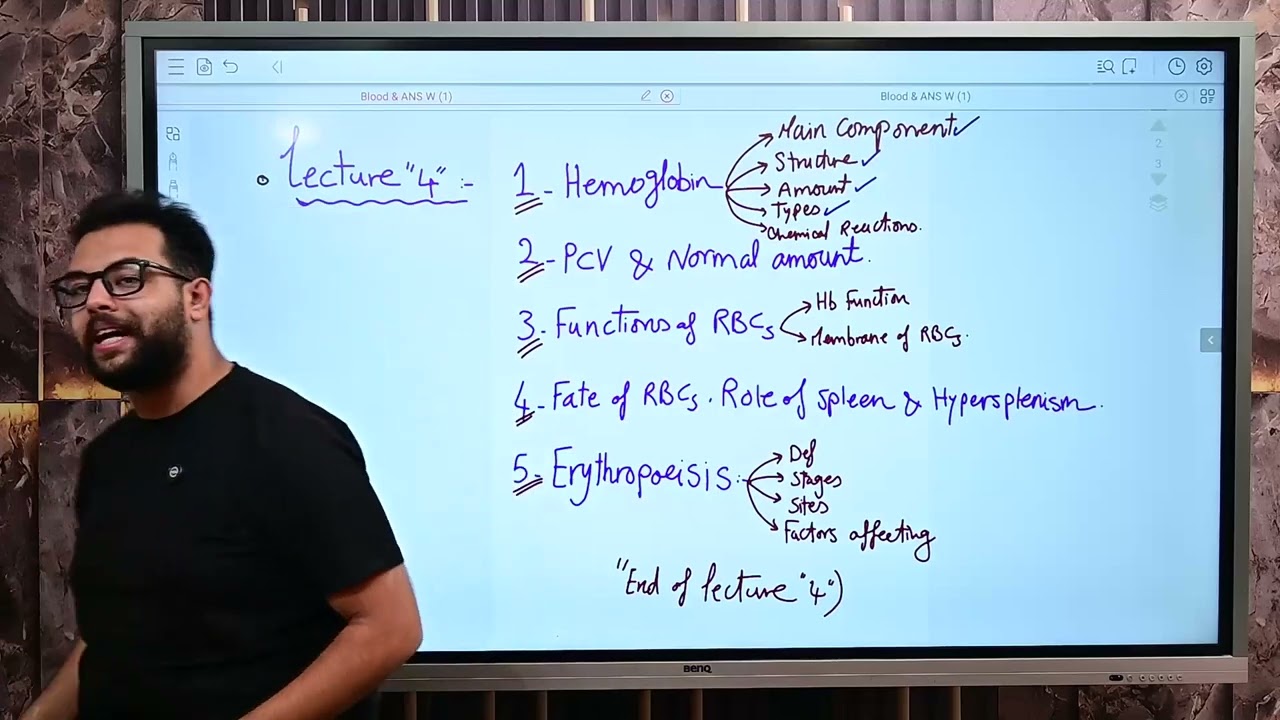 Blood & ANS W (1)
Blood & ANS W (1)
2
3
• Lecture "4" :-
1- Hemoglobin
Main Component✓
Structure✓
Amount✓
Types✓
Chemical Reactions.
2- PCV & Normal amount.
3- Functions of RBCs
Hb Function
Membrane of RBCs.
4- Fate of RBCs. Role of Spleen & Hypersplenism.
5- Erythropoeisis :-
Def
Stages
Sites
Factors affecting
"End of lecture "4")
BenQ